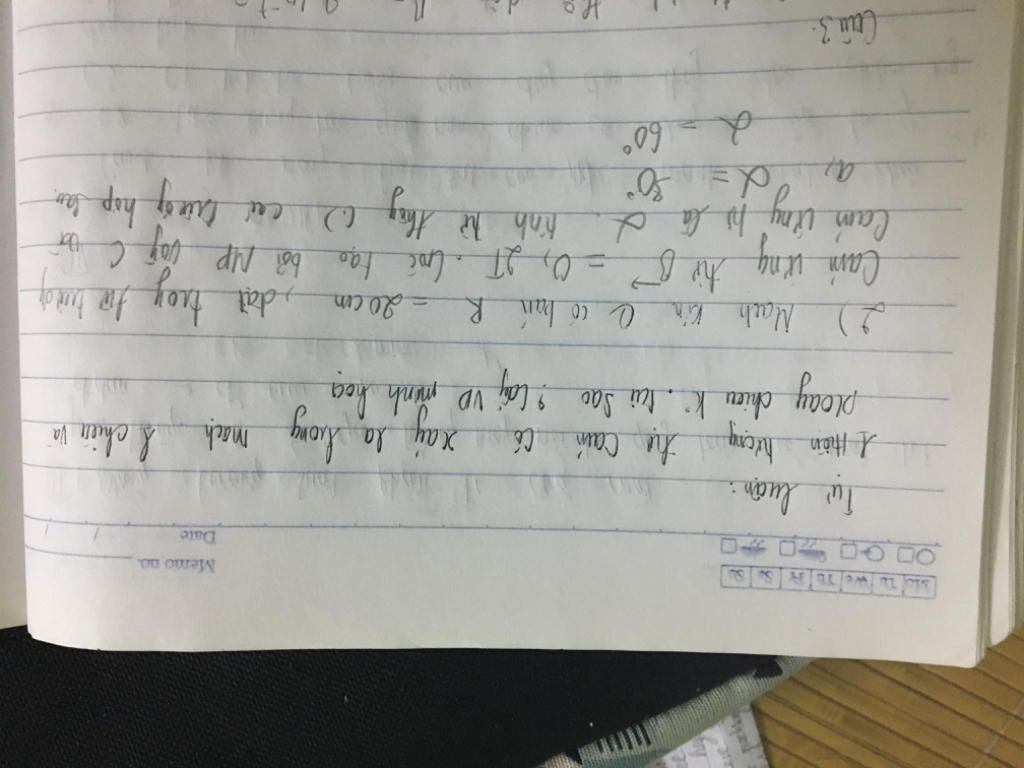 Mo Tu We Th Fr Sa Su
Memo no.
Date / /
Tự luận:
1. Hiện tượng tự cảm có xảy ra trong mạch 1 chiều và
xoay chiều k. tại sao? Lấy VD minh hoạ
2) Mạch kín C có bán R = 20cm, đặt trog từ trườg
cảm ứng từ B = 0,2T. Góc tạo bởi MP vòg C và
cảm ứng từ là α. tính từ thôg () các trườg hợp sau.
a, α = 30°
α = 60°
Câu 3.